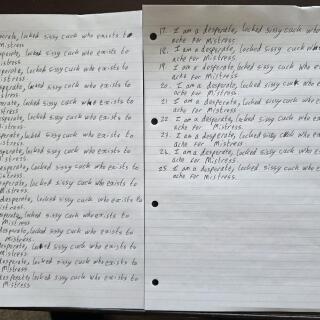 perate, locked sissy cuck who exists to
Mistress.
perate, locked sissy cuck who exists to
Mistress
sperate, locked sissy cuck who exists to
Mistress
sperate, locked sissy cuck who exists to
Mistress
perate, locked sissy cuck who exists to
Mistress.
sperate, locked sissy cuck who exists to
Mistress
sperate, locked sissy cuck who exists to
Mistress.
desperate, locked sissy cuck who exists to
Mistress.
desperate, locked sissy cuck who exists to
Mistress
desperate, locked sissy cuck who exists to
Mistress
desperate, locked sissy cuck who exists to
Mistress
17. I am a desperate, locked sissy cuck who e
ache for Mistress.
18. I am a desperate, locked sissy cuck who
ache for Mistress.
19. I am a desperate, locked sissy cuck who ex
ache for Mistress.
20. I am a desperate, locked sissy cuck who e
ache for Mistress.
21 I am a desperate, locked sissy cuck who e
ache for Mistress.
22. I am a desperate, locked sissy cuck who e
ache for Mistress
23. I am a desperate, locked sissy cuck who e
ache for Mistress
24. I am a desperate, locked sissy cuck who e
ache for Mistress
25. I am a desperate, locked sissy cuck who e
ache for Mistress.